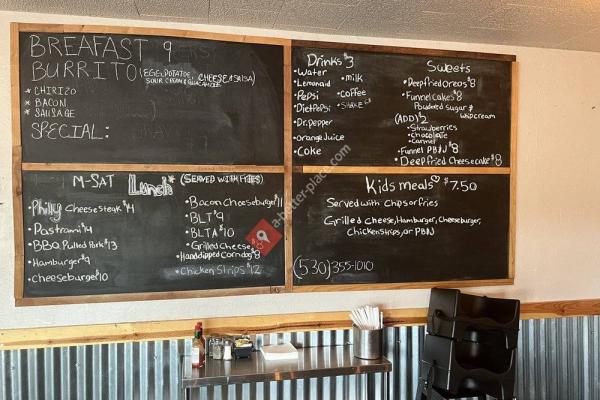 BREAKFAST 9
BURRITO (EGG, POTATOE, CHEESE & SALSA)
SOUR CREAM & GUACAMOLE
* CHIRIZO
* BACON
* SAUSAGE
SPECIAL:
Drinks $3
• Water
• Lemonaid
• Pepsi
• Diet Pepsi
• Dr. Pepper
• orange Juice
• Coke
• milk
• coffee
Sweets
• Deep fried oreos $8
• Funnel cakes $8
Powdered sugar &
whip cream
(ADD) $2
• Strawberries
• chocolate
• Carmel
• Funnel PB&J $8
• Deep fried Cheesecake $8
M-SAT Lunch* (SERVED WITH FRIES)
• Philly Cheese steak $14
• Pastrami $14
• BBQ Pulled Pork $13
• Hamburger $9
• cheeseburger $10
• Bacon cheeseburger $11
• BLT $9
• BLTA $10
• Grilled Cheese
• Hand dipped Corndog $8
• Chicken Strips $12
Kids meals $7.50
Served with chips or fries
Grilled cheese, Hamburger, Cheeseburger,
Chicken strips, or PB&J
(530) 355-1010
a-better-place.com